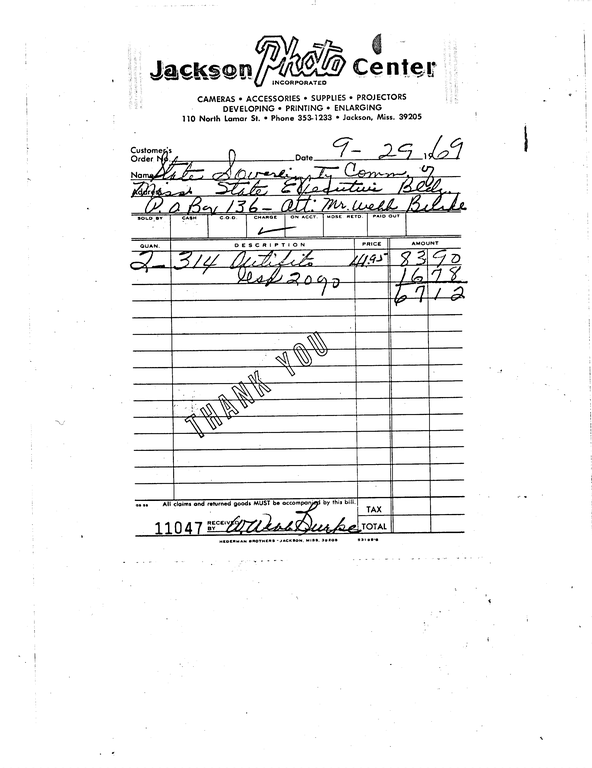 Jackson Photo Center
INCORPORATED
CAMERAS • ACCESSORIES • SUPPLIES • PROJECTORS
DEVELOPING • PRINTING • ENLARGING
110 North Lamar St. • Phone 353-1233 • Jackson, Miss. 39205
Customer's
Order No. Date 9-29 1969
Name State Sovereignty Comm. of
Address Miss. State Executive Bldg.
P.O Box 136 - Att: Mr. Webb
SOLD BY CASH C.O.D. CHARGE ON ACCT. MDSE. RETD. PAID OUT
QUAN. DESCRIPTION PRICE AMOUNT
2 - 314 Outfits 41.95 83 90
less 20% 16 78
67 12
THANK YOU
All claims and returned goods MUST be accompanied by this bill.
TAX
11047 RECEIVED BY W. Webb Burke TOTAL
HEDERMAN BROTHERS - JACKSON, MISS.